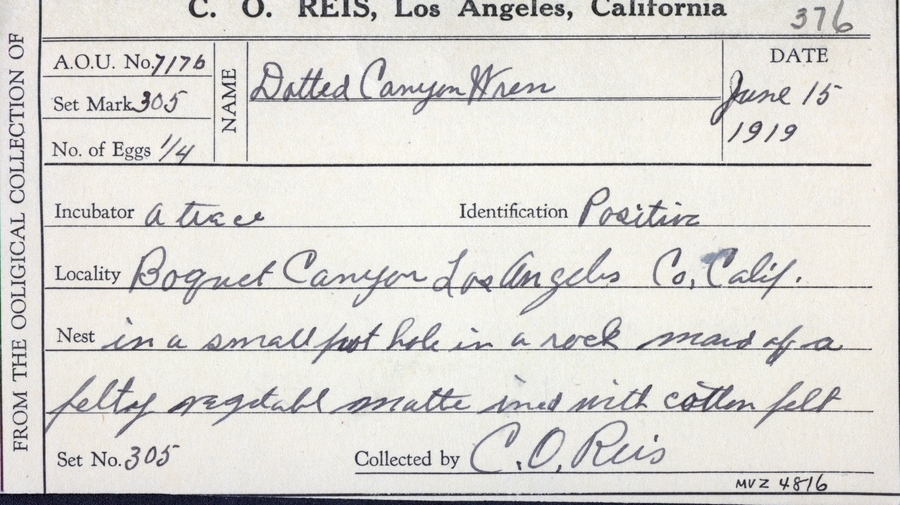 C. O. REIS, Los Angeles, California
376
FROM THE OOLIGICAL COLLECTION OF
A.O.U. No. 717b
Set Mark 305
No. of Eggs 1/4
NAME
Dotted Canyon Wren
DATE
June 15
1919
Incubator a trace
Identification Positive
Locality Boquet Canyon Los Angeles Co, Calif.
Nest in a small pot hole in a rock maid of a
felty vegetabl matte ined with cotton felt
Set No. 305
Collected by C. O. Reis
MVZ 4816